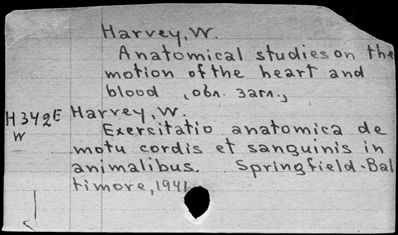 Harvey, W.
Anatomical studies on the
motion of the heart and
blood, обл. загл.,
H342E Harvey, W.
W
Exercitatio anatomica de
motu cordis et sanguinis in
animalibus. Springfield-Bal
timore, 1941